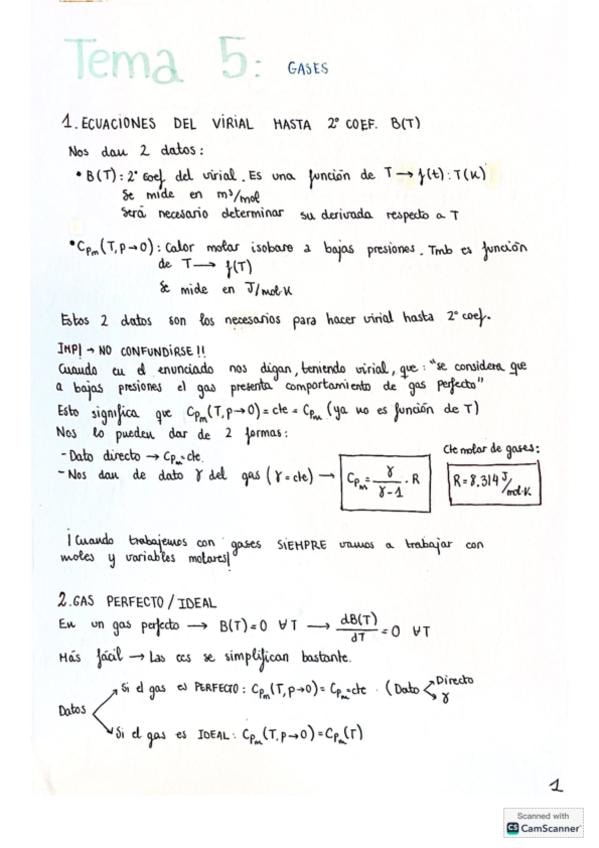 Tema 5: GASES
1. ECUACIONES DEL VIRIAL HASTA 2º COEF. B(T)
Nos dan 2 datos:
• B(T): 2º coef del virial. Es una función de T → f(t): T(K)
Se mide en m³/mol
Será necesario determinar su derivada respecto a T
• CPm(T,p→0): Calor molar isobaro a bajas presiones. Tmb es función
de T → f(T)
Se mide en J/mol·K
Estos 2 datos son los necesarios para hacer virial hasta 2º coef.
IMP! → NO CONFUNDIRSE!!
Cuando en el enunciado nos digan, teniendo virial, que: "se considera que
a bajas presiones el gas presenta comportamiento de gas perfecto"
Esto significa que CPm(T,p→0) = cte = CPm (ya no es función de T)
Nos lo pueden dar de 2 formas:
- Dato directo → CPm = cte.
Cte molar de gases:
- Nos dan de dato γ del gas (γ = cte) → CPm = γ/γ-1 · R
R = 8.314 J/mol·K
¡Cuando trabajemos con gases SIEMPRE vamos a trabajar con
moles y variables molares!
2. GAS PERFECTO / IDEAL
En un gas perfecto → B(T) = 0 ∀T → dB(T)/dT = 0 ∀T
Más fácil → Las ecs se simplifican bastante.
Datos
Si el gas es PERFECTO: CPm(T,p→0) = CPm = cte. (Dato < Directo
γ
Si el gas es IDEAL: CPm(T,p→0) = CPm(T)
1
Scanned with
CS CamScanner